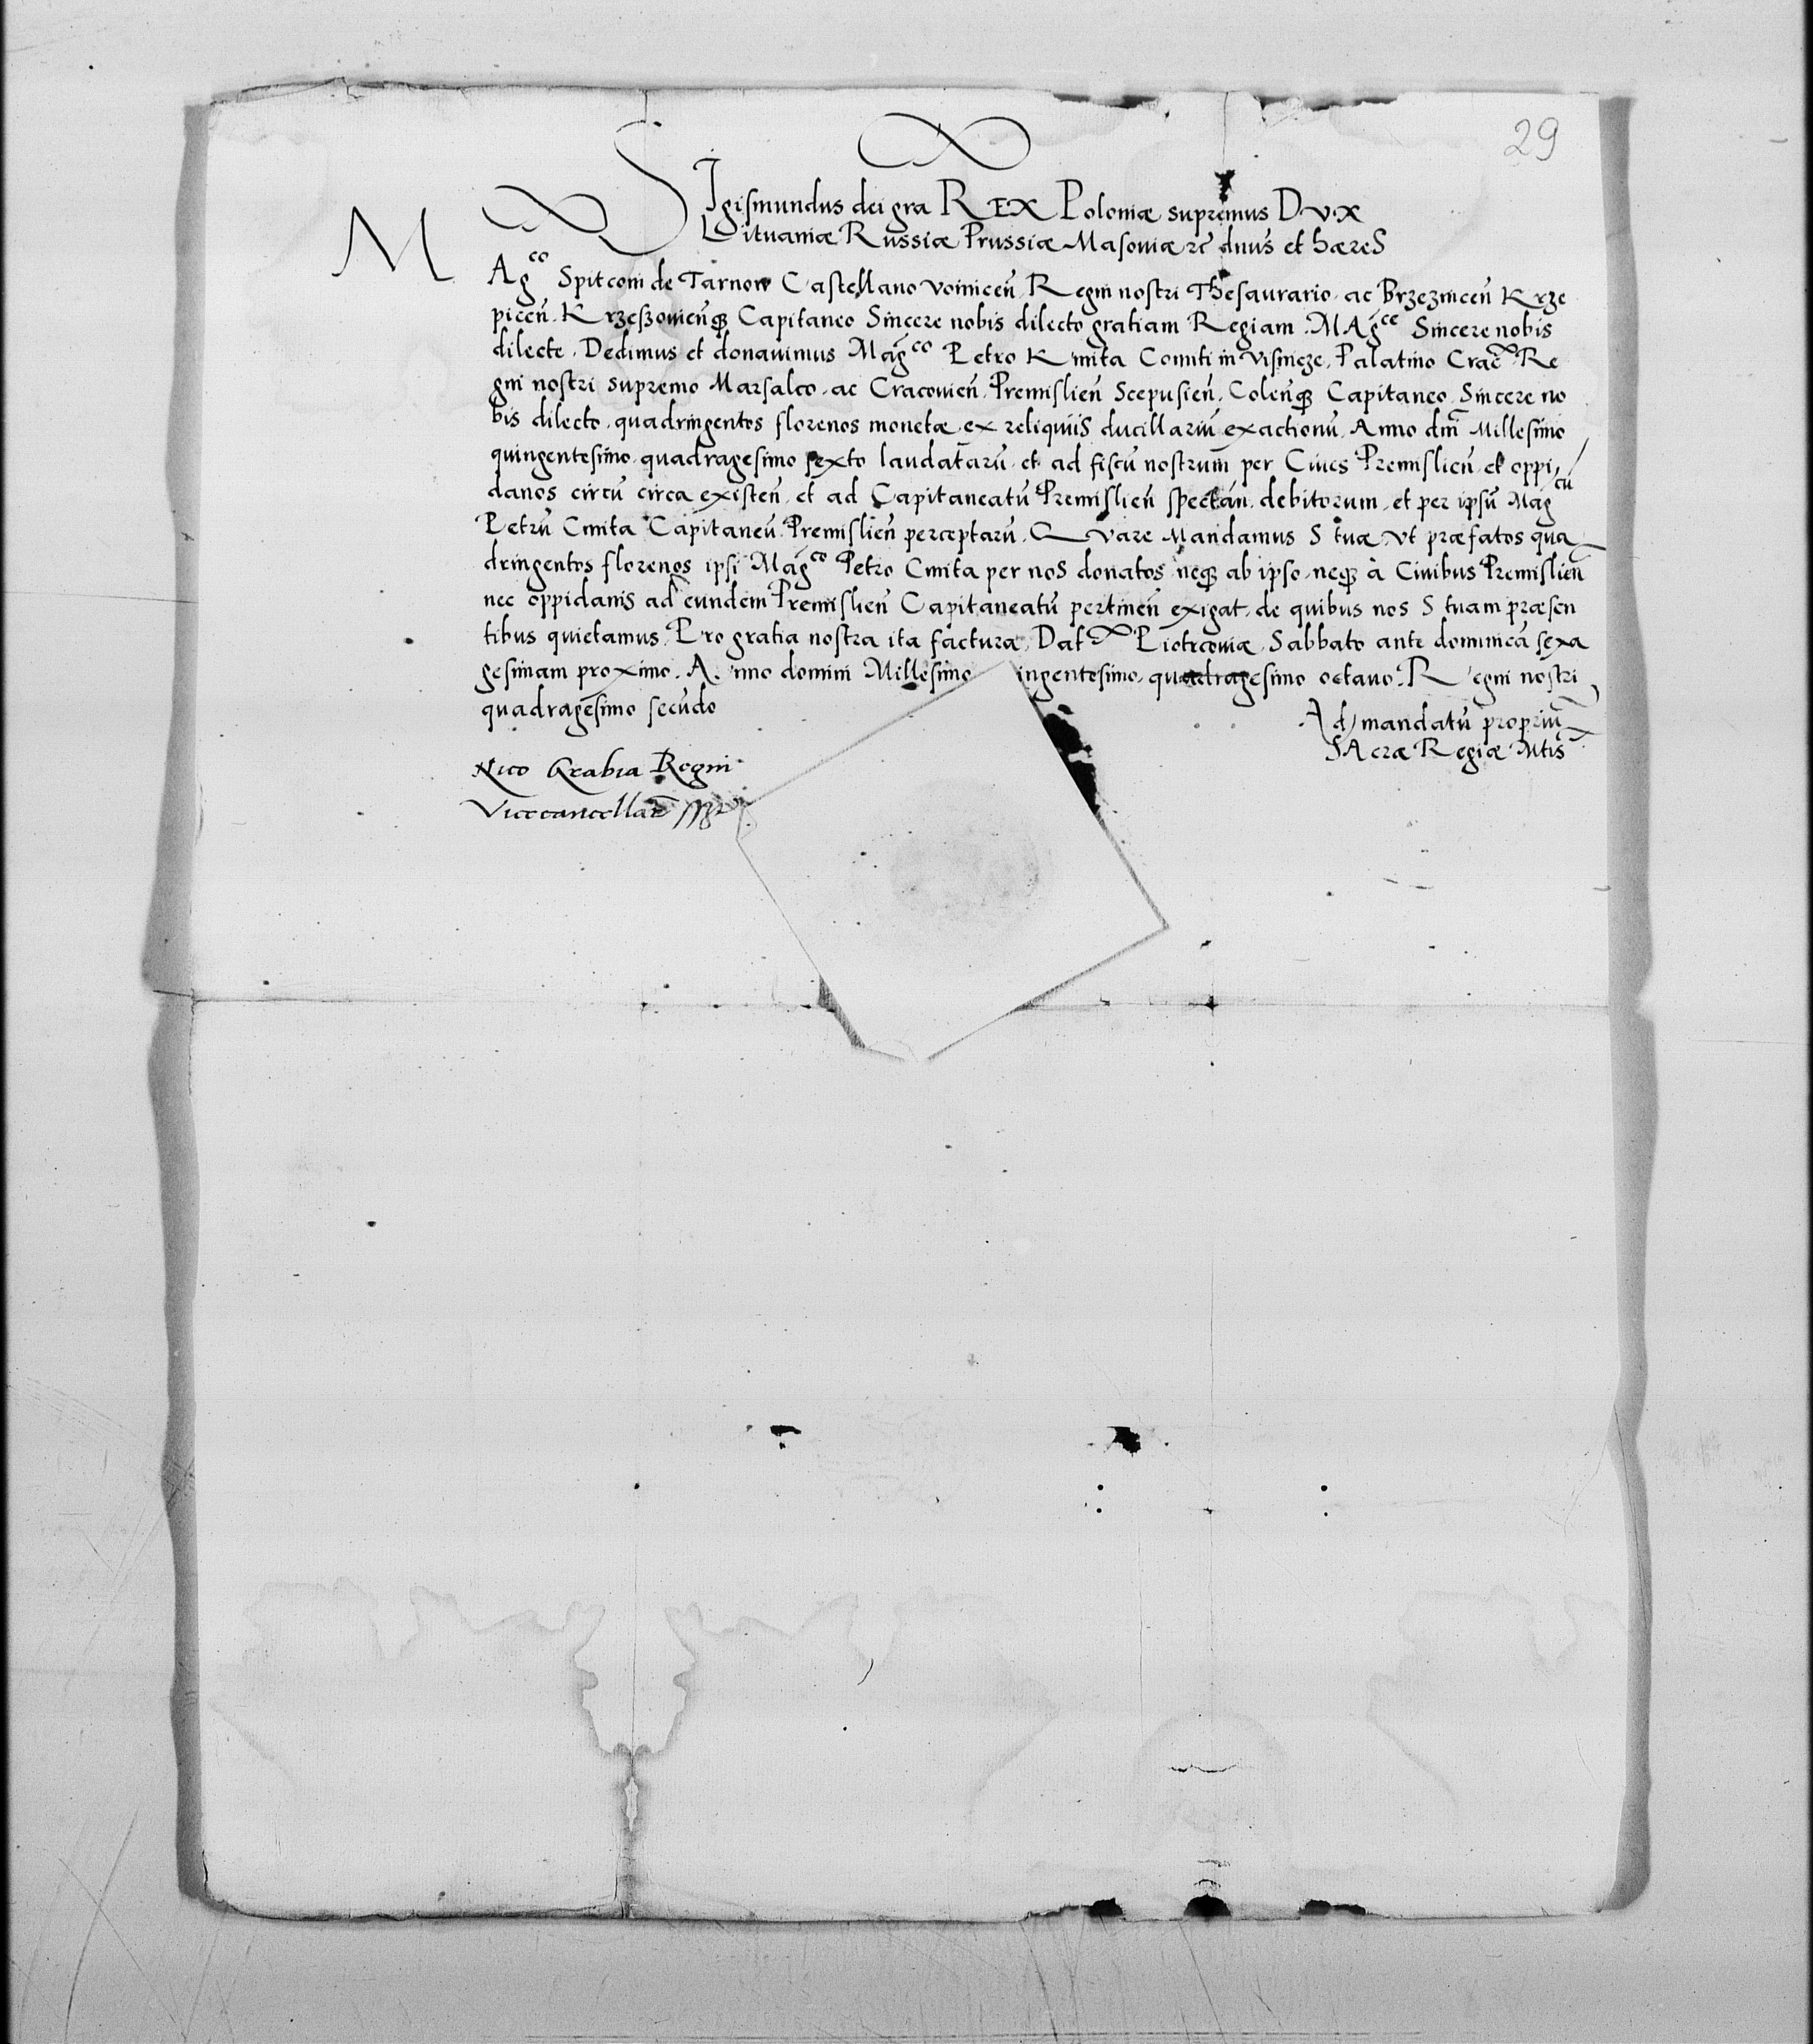 29
SIgismundus dei gra REX Poloniæ supremus DVX
Lituaniæ Russiæ Prussiæ Masoviæ zc̃ dnus et hæreS
MAgco Spitconi de Tarnow Castellano Voinicen̄ Regni nostri Thesaurario, ac Brzeznicen̄ Krze
picen̄ Krzeszovien̄q3 Capitaneo Sincere nobis dilecto gratiam Regiam. MAgce Sincere nobis
dilecte. Dedimus et donavimus Magco Petro Kmita Comiti in Visnicze, Palatino Crac̃. Re
gni nostri supremo Marsalco, ac Cracovien̄, Premislien̄ Scepusien̄, Colen̄q3 Capitaneo, Sincere no
bis dilecto, quadringentos florenos monetæ, ex reliquiis ducillariū exactionū, Anno dm̄i Millesimo
quingentesimo, quadragesimo sexto laudatarū, et ad fiscū nostrum per Cives Premislien̄ et oppi
danos circū circa existen̄, et ad Capitaneatū Premislien̄ spectan̄, debitorum, et per ipsū Magcū
Petrū Cmita Capitaneū Premislien̄ perceptarū. Quare Mandamus S tuæ, Vt præfatos qua
dringentos florenos ipsi Magco Petro Cmita per nos donatos neq3 ab ipso, neq3 à Civibus Premislien̄
nec oppidanis ad eundem Premislien̄ Capitaneatū pertinen̄ exigat, de quibus nos S tuam præsen
tibus quietamus. Pro gratia nostra ita factura. Dat̃ Piotrcoviæ, Sabbato ante dominicā sexa
gesimam proximo. Anno domini Millesimo ingentesimo, quadragesimo octavo. Regni nostri
quadragesimo secūdo
Ad mandatū propriū
SAcræ Regiæ Mtis
Nico Grabia Regni
Vicecancellar̃ sspt